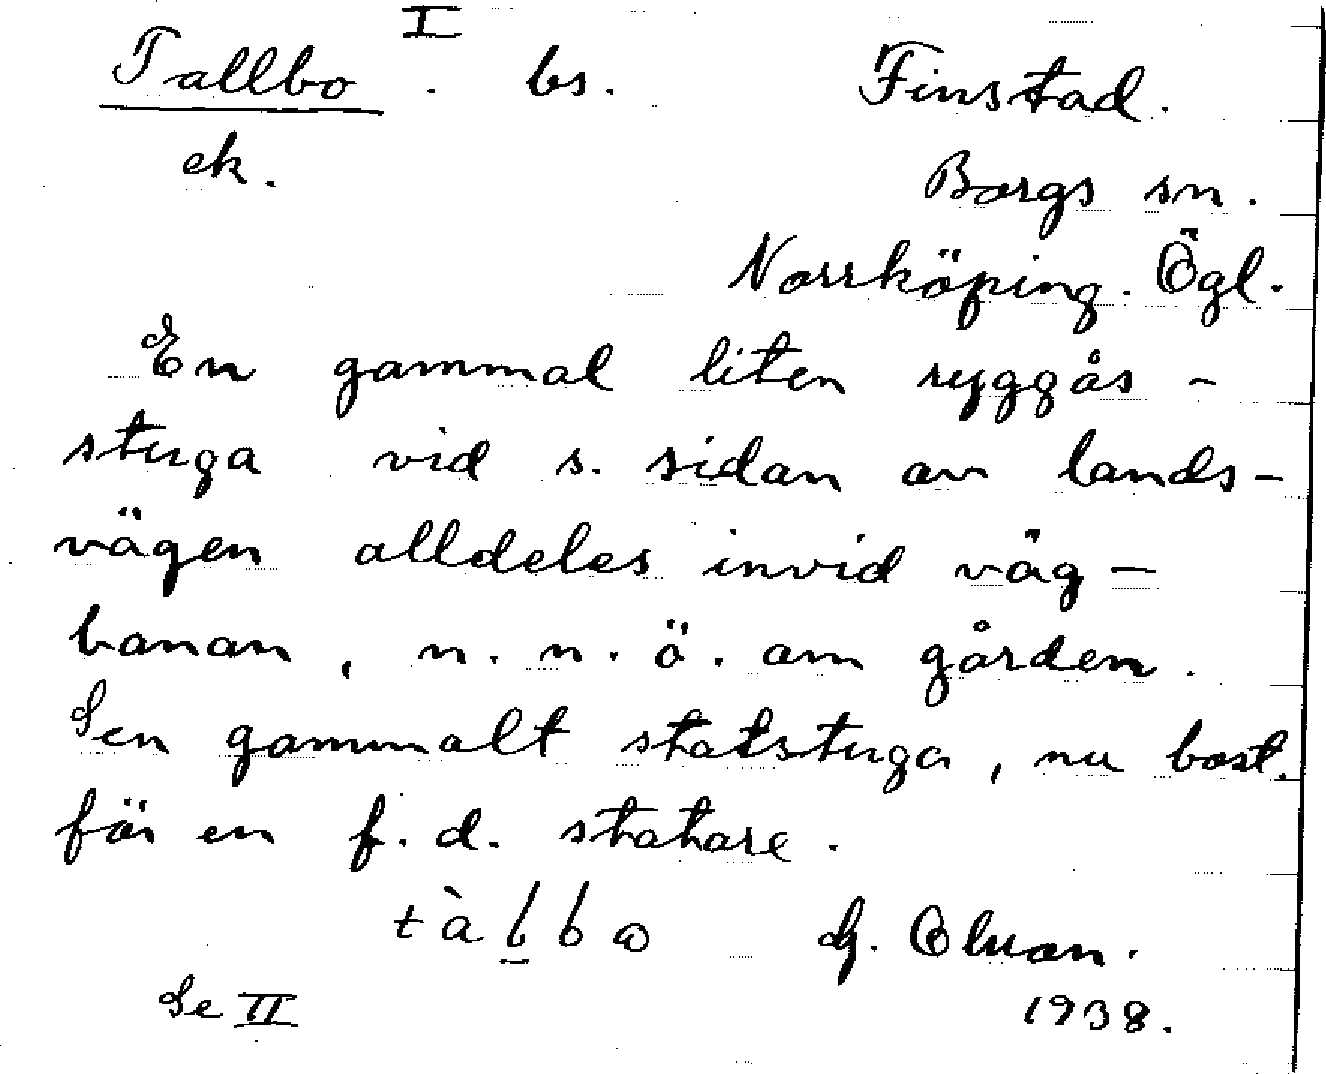 I
Tallbo. bs. Finstad.
ek. Borgs sn.
Norrköping. Ögl.
En gammal liten ryggås-
stuga vid s. sidan av lands-
vägen alldeles invid väg-
banan, n. n. ö. om gården.
Sen gammalt statstuga, nu bost.
för en f. d. statare.
1938.
Se II